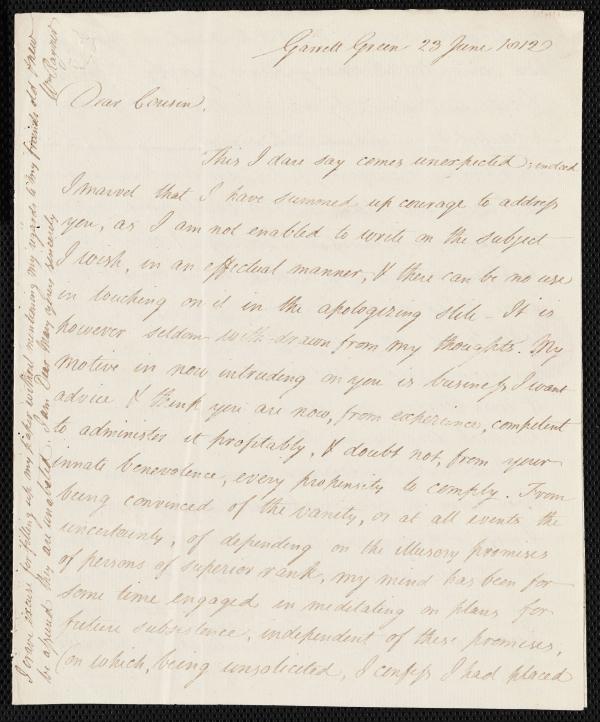 Garrett Green 23 June 1812
Dear Cousin,
This I dare say comes unexpected; indeed
I marvel that I have summoned up courage to address
you, as I am not enabled to write on the subject
I wish, in an effectual manner, & there can be no use
in touching on it in the apologizing stile - It is
however seldom with-drawn from my thoughts. My
motive in now intruding on you is business, I want
advice & think you are now, from experience, competent
to administer it profitably, & doubt not, from your
innate benevolence, every propensity to comply. From
being convinced of the vanity, or at all events the
uncertainty, of depending on the illusory promises
of persons of superior rank, my mind has been for
some time engaged in meditating on plans for
future subsistence, independent of these promises,
(on which, being unsolicited, I confess I had placed
I crave excuse for filling up my paper without mentioning my regards to my friends old & new
be assured they are unabated. I am Dear Mary yours sincerely
Wm